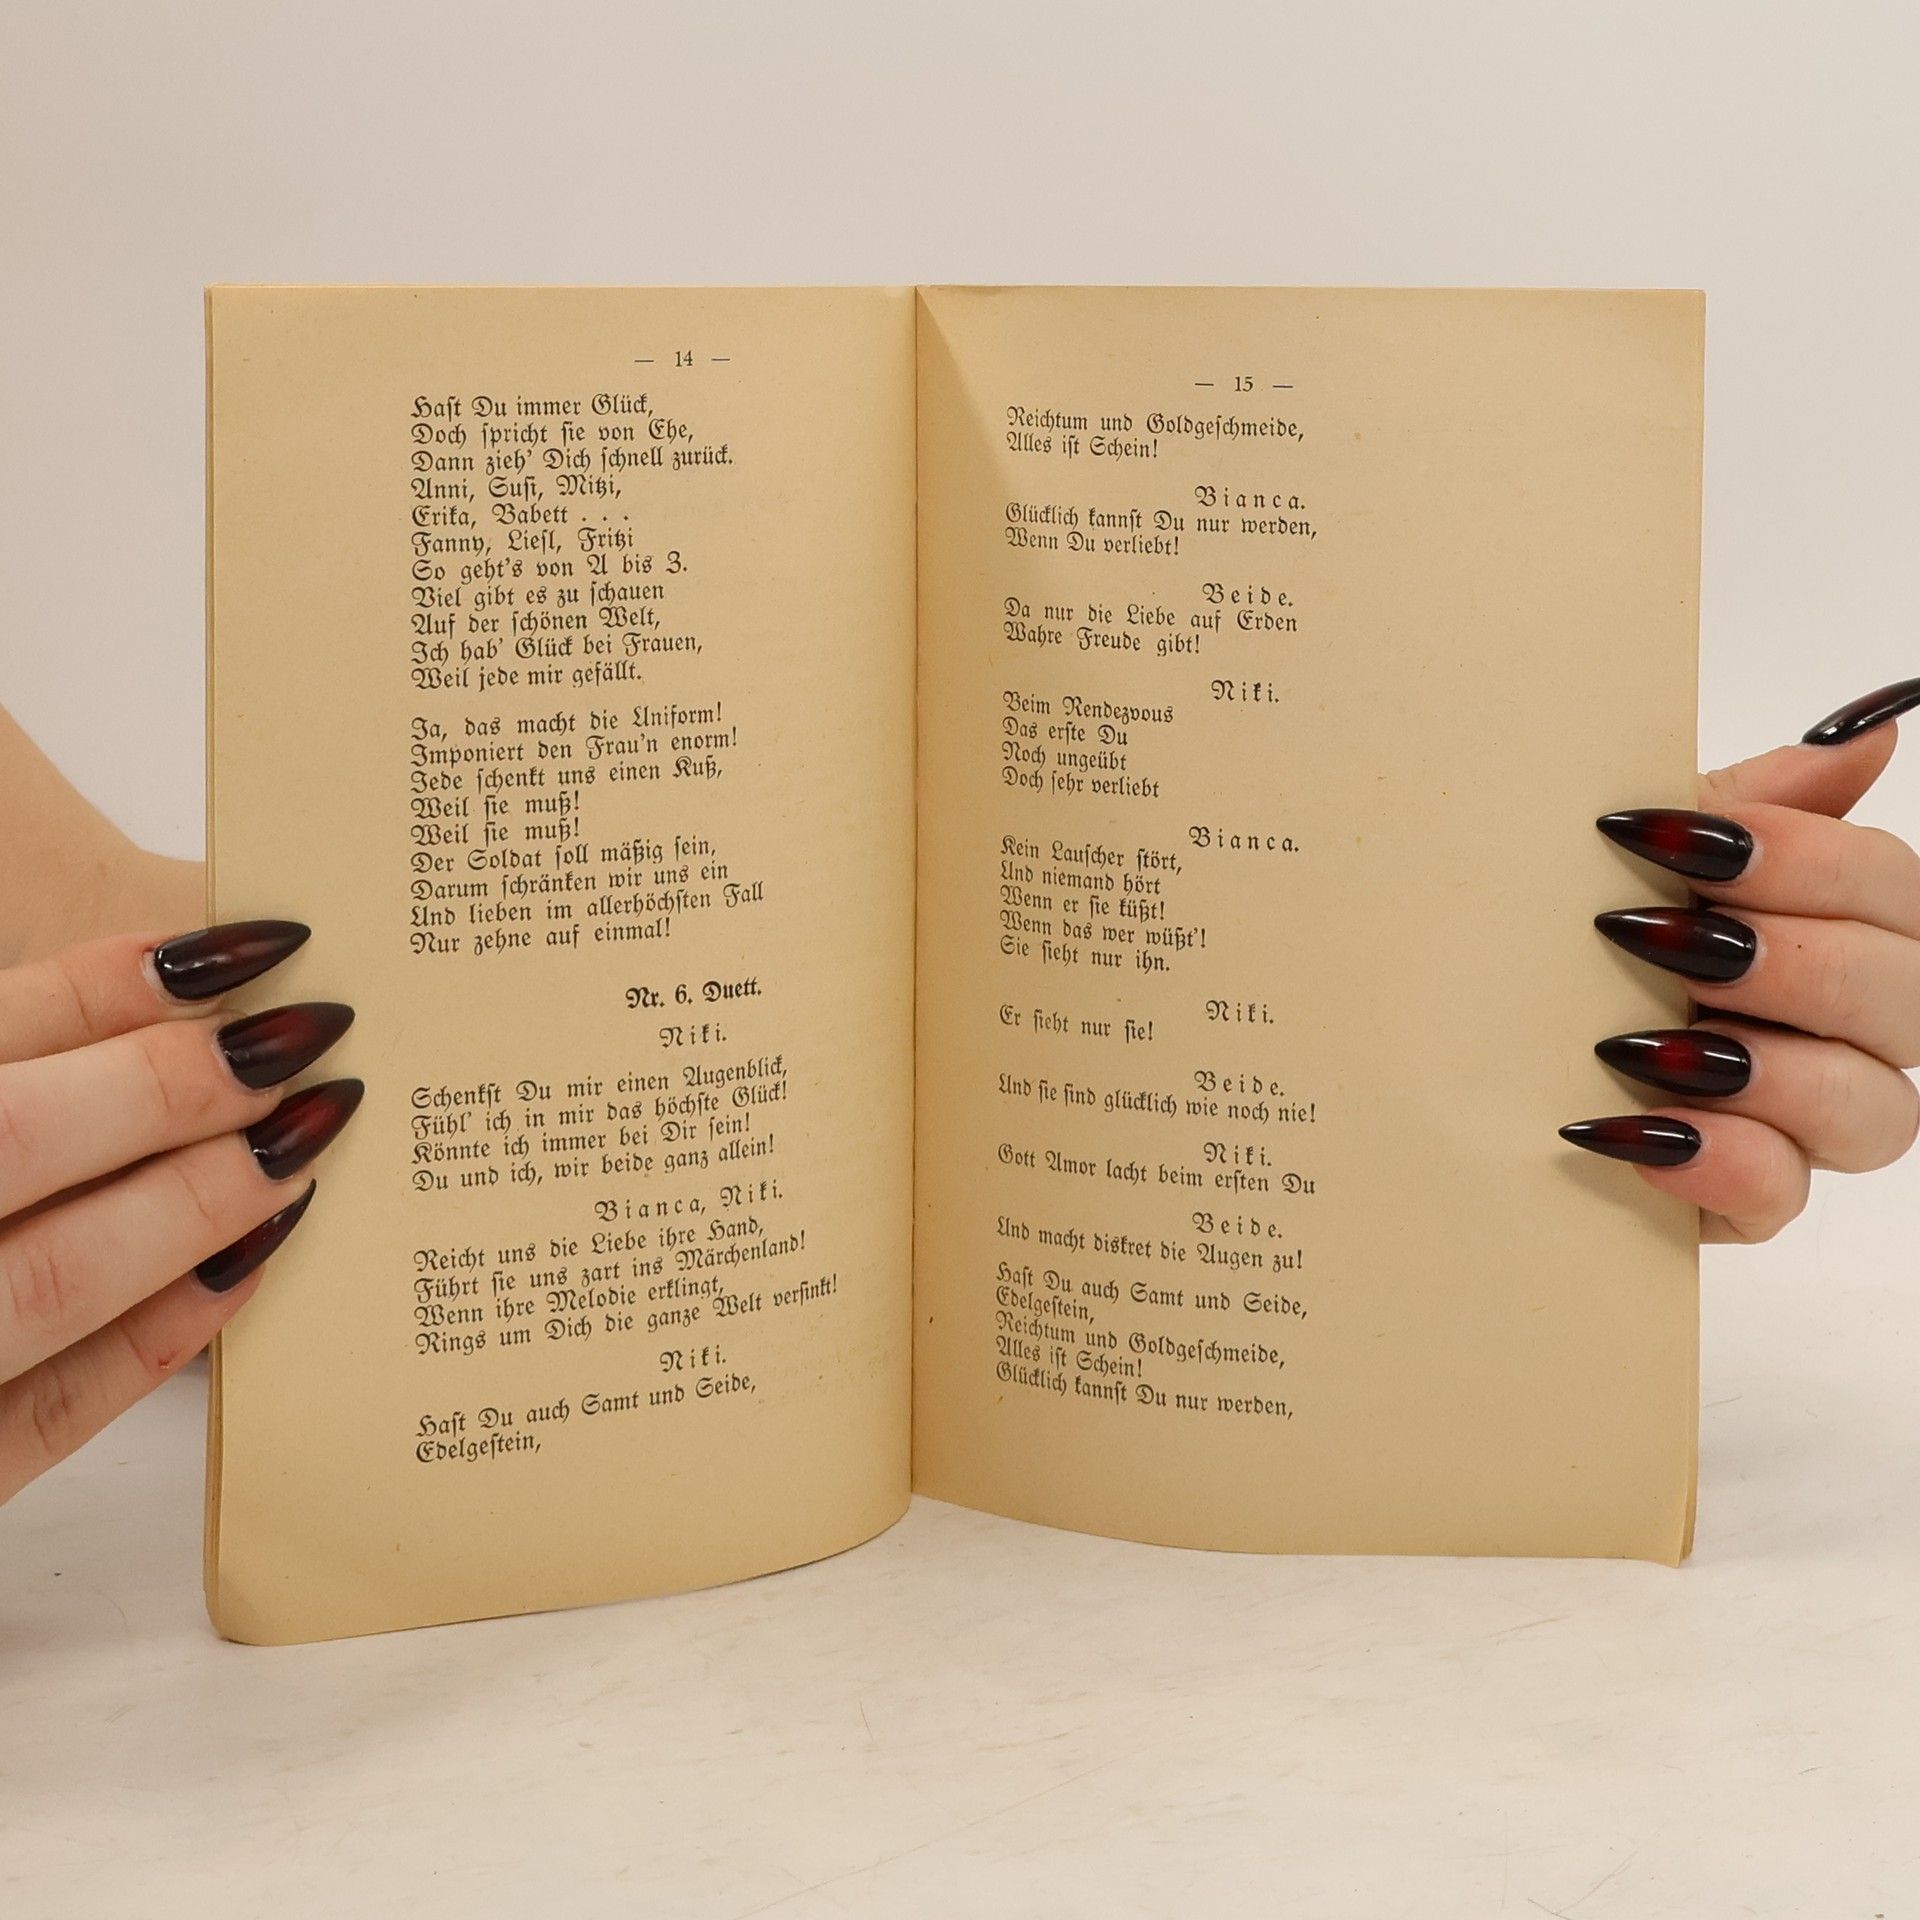 — 14 —
Hast Du immer Glück,
Doch spricht sie von Ehe,
Dann zieh' Dich schnell zurück.
Anni, Susi, Mitzi,
Erika, Babett . . .
Fanny, Liesl, Fritzi
So geht's von A bis Z.
Viel gibt es zu schauen
Auf der schönen Welt,
Ich hab' Glück bei Frauen,
Weil jede mir gefällt.
Ja, das macht die Uniform!
Imponiert den Frau'n enorm!
Jede schenkt uns einen Kuß,
Weil sie muß!
Weil sie muß!
Der Soldat soll mäßig sein,
Darum schränken wir uns ein
Und lieben im allerhöchsten Fall
Nur zehne auf einmal!
Nr. 6. Duett.
Niki.
Schenkst Du mir einen Augenblick,
Fühl' ich in mir das höchste Glück!
Könnte ich immer bei Dir sein!
Du und ich, wir beide ganz allein!
Bianca, Niki.
Reicht uns die Liebe ihre Hand,
Führt sie uns zart ins Märchenland!
Wenn ihre Melodie erklingt,
Rings um Dich die ganze Welt versinkt!
Niki.
Hast Du auch Samt und Seide,
Edelgestein,
— 15 —
Reichtum und Goldgeschmeide,
Alles ist Schein!
Bianca.
Glücklich kannst Du nur werden,
Wenn Du verliebt!
Beide.
Da nur die Liebe auf Erden
Wahre Freude gibt!
Niki.
Beim Rendezvous
Das erste Du
Noch ungeübt
Doch sehr verliebt
Bianca.
Kein Lauscher stört,
Und niemand hört
Wenn er sie küßt!
Wenn das wer wüßt'!
Sie sieht nur ihn.
Niki.
Er sieht nur sie!
Beide.
Und sie sind glücklich wie noch nie!
Niki.
Gott Amor lacht beim ersten Du
Beide.
Und macht diskret die Augen zu!
Hast Du auch Samt und Seide,
Edelgestein,
Reichtum und Goldgeschmeide,
Alles ist Schein!
Glücklich kannst Du nur werden,